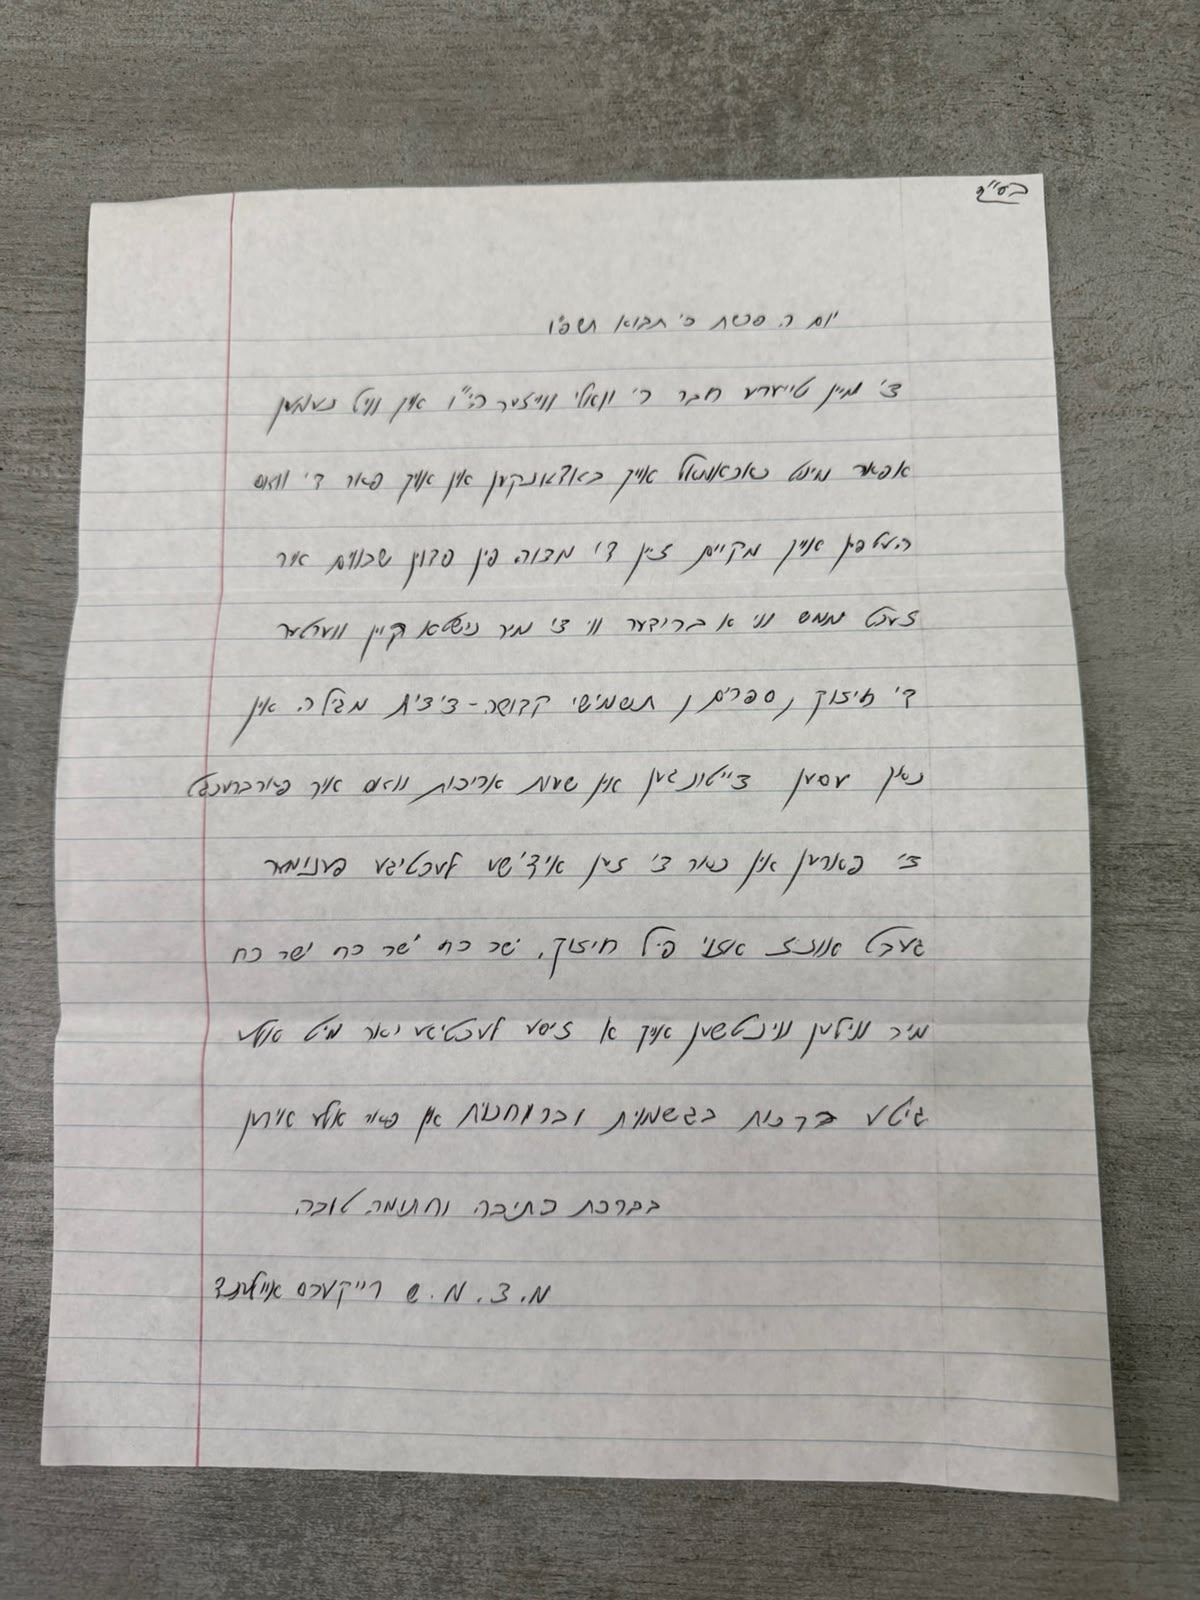 בס"ד
יום ה. פרשת כי תבוא תשפ"ו
צו מיין טייערע חבר ר' וואלי ווייזער הי"ו איך וויל נעמען
אפאר מינוט נאכאמאל אייך באדאנקען אין אויך פאר די וואס
העלפן אייך מקיים זיין די מצוה פון פדיון שבוים איר
זענט ממש ווי א ברידער ווי צו מיר נישטא קיין ווערטער
די חיזוק, ספרים, תשמישי קדושה - ציצית מגילה אין
נאך עסען צייטונגען אין שעות אריכות וואס איר פארברענגט
צו פארען אין נאר צו זען אידישע לעכטיגע פענימער
געבט אונז אזוי פיל חיזוק. ישר כח ישר כח ישר כח
מיר ווילען ווינטשען אייך א זיסע לעכטיגע יאר מיט אלע
גיטע ברכות בגשמיות וברוחניות אין פאר אלע אידען
בברכת כתיבה וחתימה טובה
מ.צ.מ.ש רייקערס איילענד